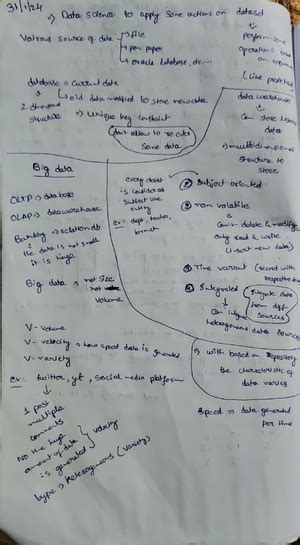 31/1/24
=> Data science to apply some actions on dataset
Various source of data
-> file
-> pen paper
-> oracle database, de....
-> perform some
operations based
on
(like prediction
database -> current data
-> old data modified to store new data
2 dimensional
structure
-> unique key constraint
(Don't allow to recover
same data)
data warehouse
-> Can store
data
-> multidimensional
structure to
store
Big data
OLTP -> database
OLAP -> datawarehouse
Banking -> database
the data is not small
it is huge
Big data -> not size
not
volume
V - Volume
V - velocity -> how speed data is generated
V - variety
Ex: twitter, yt, social media platform
1 post
multiple
comments
No the huge
amount of data
is generated
} velocity
type -> Heterogeneous (variety)
every data
is considered as
subject like
entity
Ex: dept, trades,
branch
① Subject oriented
② non volatile
-> Can't delete & modify
only read & write
(insert new data)
③ Time variant (record with
respective
④ Integrated
(Integrate data
from diff
sources)
-> Can
heterogeneous data sources
=> with based on repository
the characteristic of
data varies
Speed -> data generated
per time